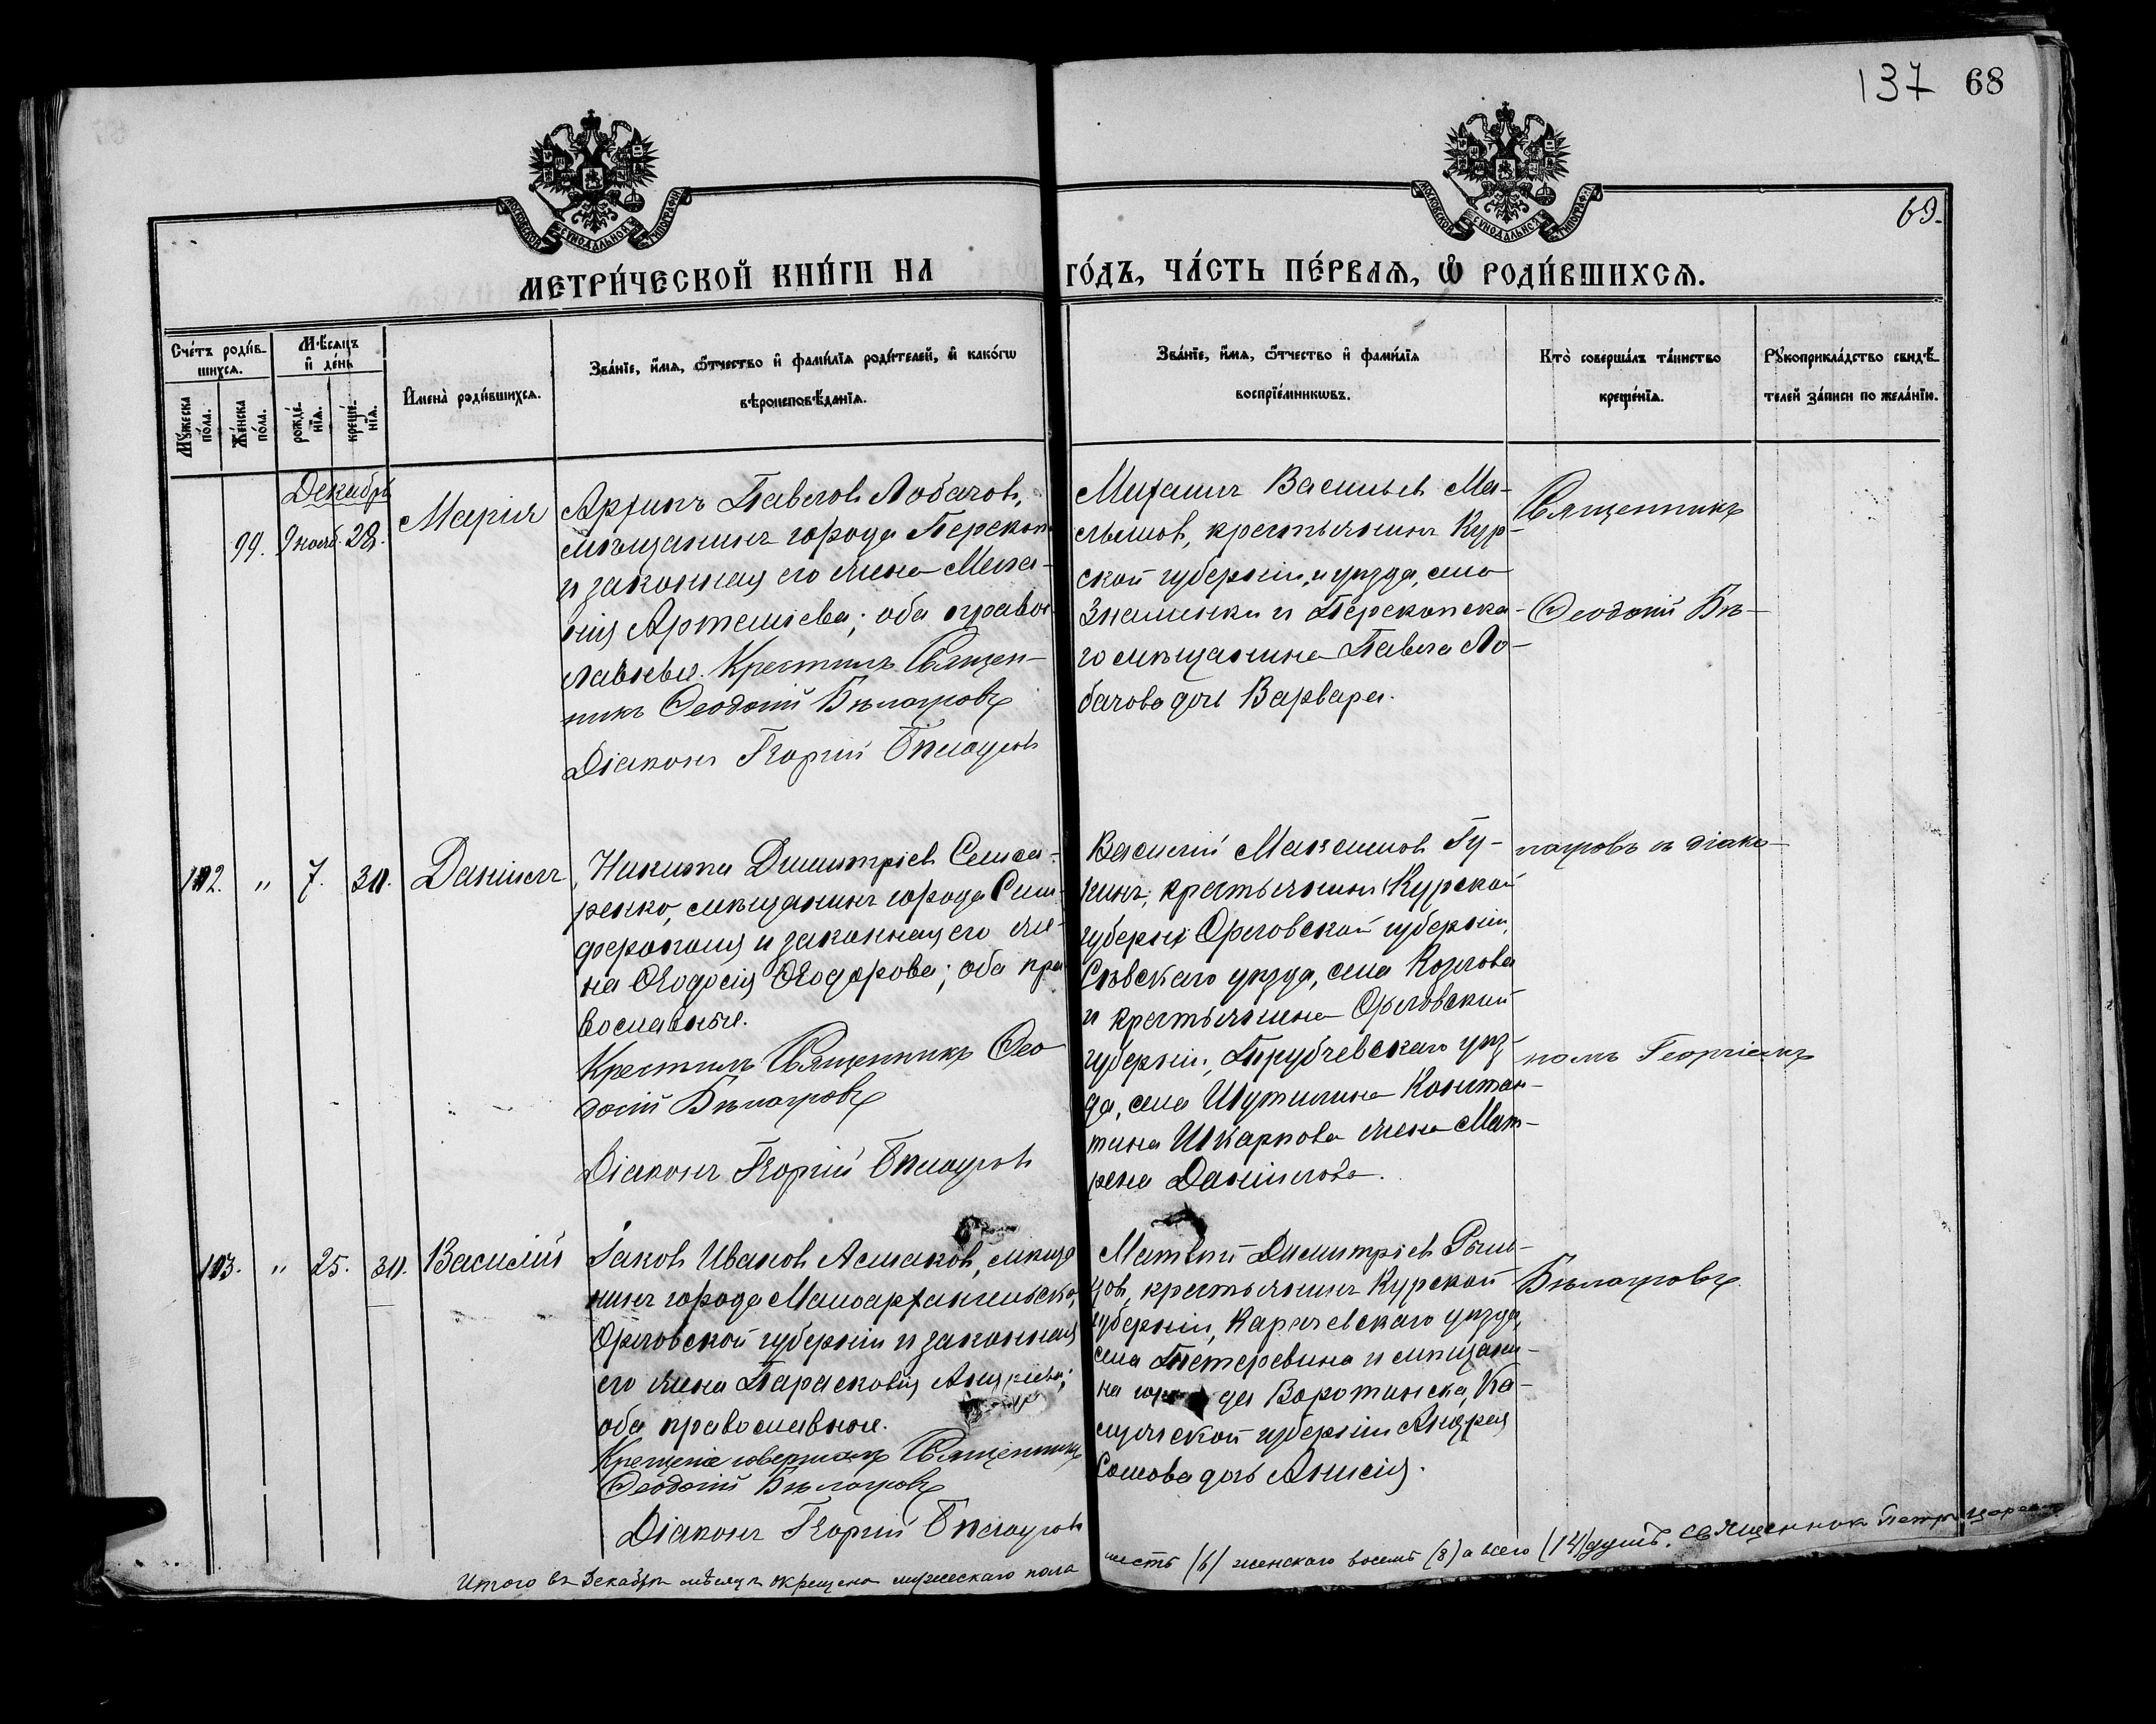 137 68
69.
МОСКОВСКОЙ СѴНОДАЛЬНОЙ ТИПОГРАФІИ
МОСКОВСКОЙ СѴНОДАЛЬНОЙ ТИПОГРАФІИ
МЕТРИ́ЧЕСКОЙ КНИ́ГИ НА ГО́ДЪ, ЧА́СТЬ ПЕ́РВАѦ, Ѽ РОДИ́ВШИХСѦ.
Сче́тъ роди́в-
шихсѧ.
Мꙋ́жеска по́ла.
Же́нска по́ла.
Мѣ́сѧцъ
и҆ де́нь
рожде́-
нїѧ.
креще́-
нїѧ.
И҆мена̀ роди́вшихсѧ.
Зва́нїе, и҆́мѧ, ѻ҆́тчество и҆ фами́лїѧ роди́телей, и҆ како́гѡ
вѣроисповѣ́данїѧ.
Зва́нїе, и҆́мѧ, ѻ҆́тчество и҆ фами́лїѧ
воспрїе́мникѡвъ.
Кто̀ соверша́лъ та́инство
креще́нїѧ.
Рꙋкоприкла́дство свидѣ́-
телей за́писи по жела́нїю.
Декабрь
99. 9 нояб. 28.
Марія
Архипъ Павловъ Лобачовъ,
мѣщанинъ города Перекопа
и законная его жена Мела-
нія Артемьева; оба право-
лавные. Крестилъ Священ-
никъ Ѳеодосій Бѣлоусовъ
Діаконъ Георгій Бѣлоусовъ
Михаилъ Васильевъ Ма-
крестьянинъ Кур-
ской губерніи, и уѣзда, села
Знаменки и Перекопска-
го мѣщанина Павла Ло-
бачова дочь Варвара.
Священникъ
Ѳеодосій Бѣ-
102. " 7. 30. Даніилъ
Никита Димитріевъ
мѣщанинъ города Сим-
ферополя и законная его же-
на Ѳеодосія Ѳеодорова; оба пра-
вославные.
Крестилъ Священникъ Ѳео-
досій Бѣлоусовъ
Діаконъ Георгій Бѣлоусовъ
Василій Максимовъ Гу-
кинъ, крестьянинъ Курской
губерніи Орловской губерніи,
Сѣвскаго уѣзда, села Козлова
и крестьянина Орловской
губерніи, Трубчевскаго уѣз-
да, села Констан-
тина жена Мат-
рена Даніилова.
лоусовъ съ діако-
номъ Георгіемъ
103. " 25. 30. Василій
Іаковъ Ивановъ мѣща
нинъ города Малоархангельска,
Орловской губерніи и законная
его жена Парасковія
оба православные.
Крещеніе совершалъ Священникъ
Ѳеодосій Бѣлоусовъ
Діаконъ Георгій Бѣлоусовъ
Матвѣй Димитріевъ
цовъ, крестьянинъ Курской
губерніи, Карачевскаго уѣзда,
села Тетеревина и мѣщани-
на города Воротынска, Ка-
лужской губерніи Андрея
Сомова дочь Анисія.
Бѣлоусовъ.
Итого въ Декабрѣ мѣсяцѣ окрещено мужескаго пола шесть (6) женскаго восемь (8) а всего (14) душъ. Священник Петръ